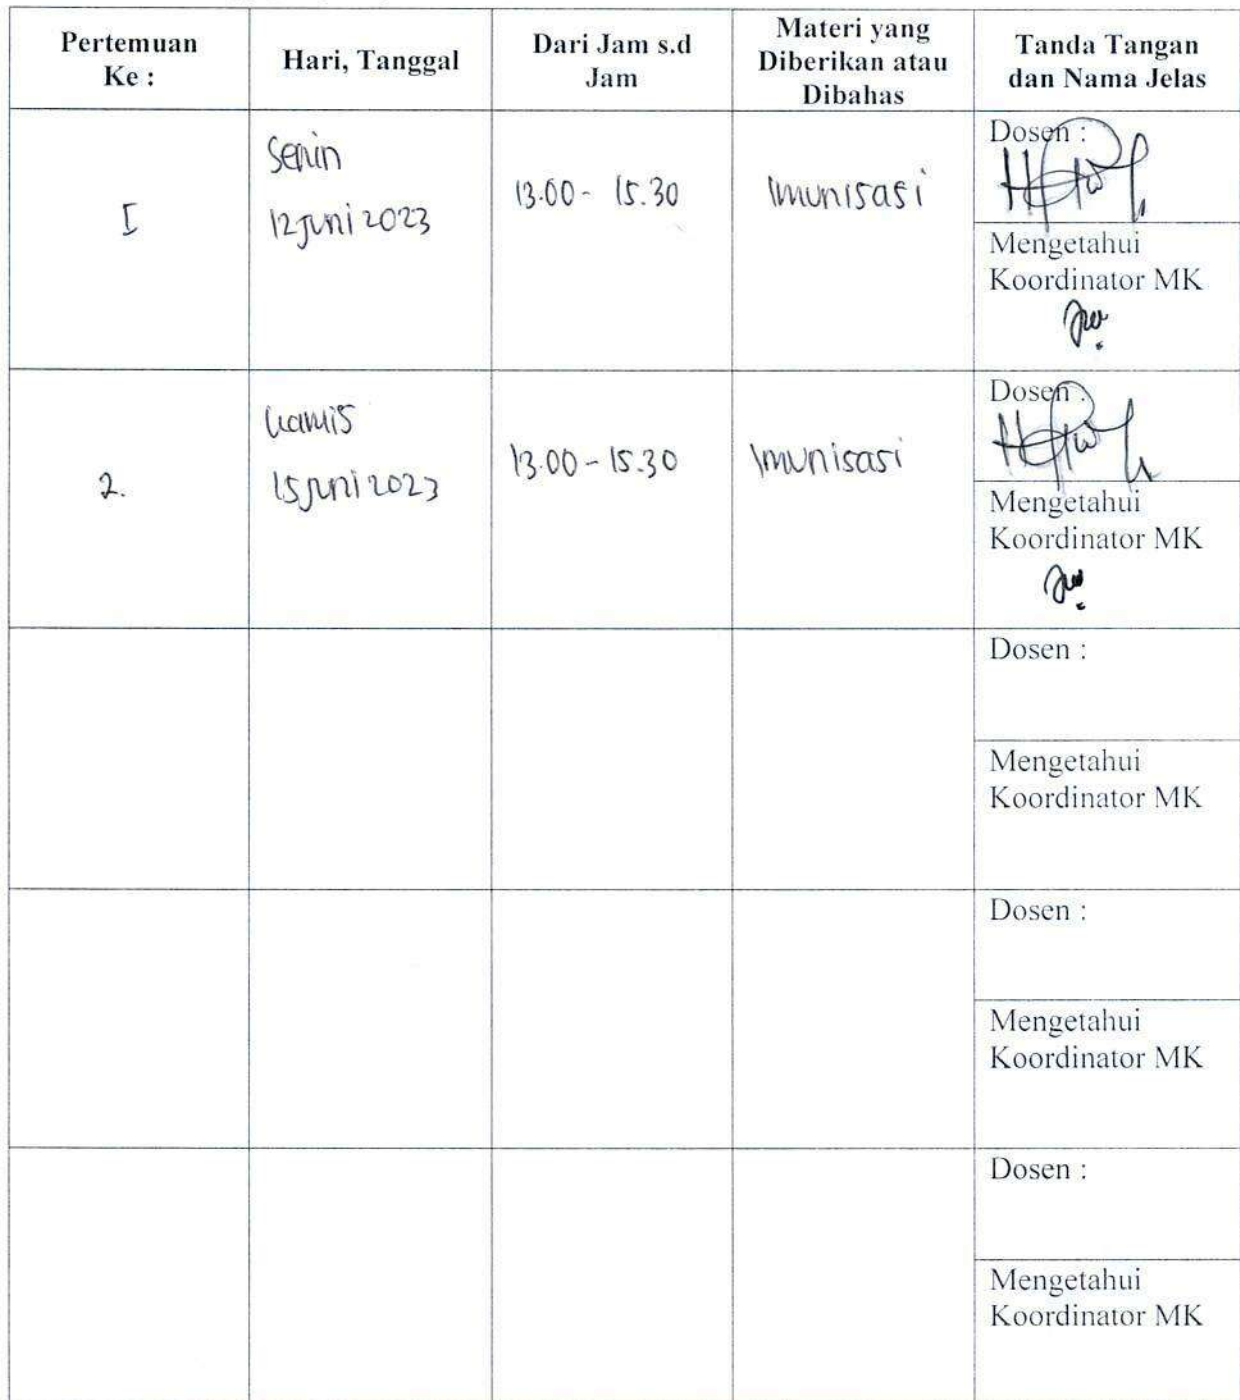 Pertemuan
Ke :
Hari, Tanggal
Dari Jam s.d
Jam
Materi yang
Diberikan atau
Dibahas
Tanda Tangan
dan Nama Jelas
I
Senin
12 juni 2023
13.00 - 15.30
Imunisasi
Dosen :
Mengetahui
Koordinator MK
2.
kamis
15 juni 2023
13.00 - 15.30
Imunisasi
Dosen :
Mengetahui
Koordinator MK
Dosen :
Mengetahui
Koordinator MK
Dosen :
Mengetahui
Koordinator MK
Dosen :
Mengetahui
Koordinator MK